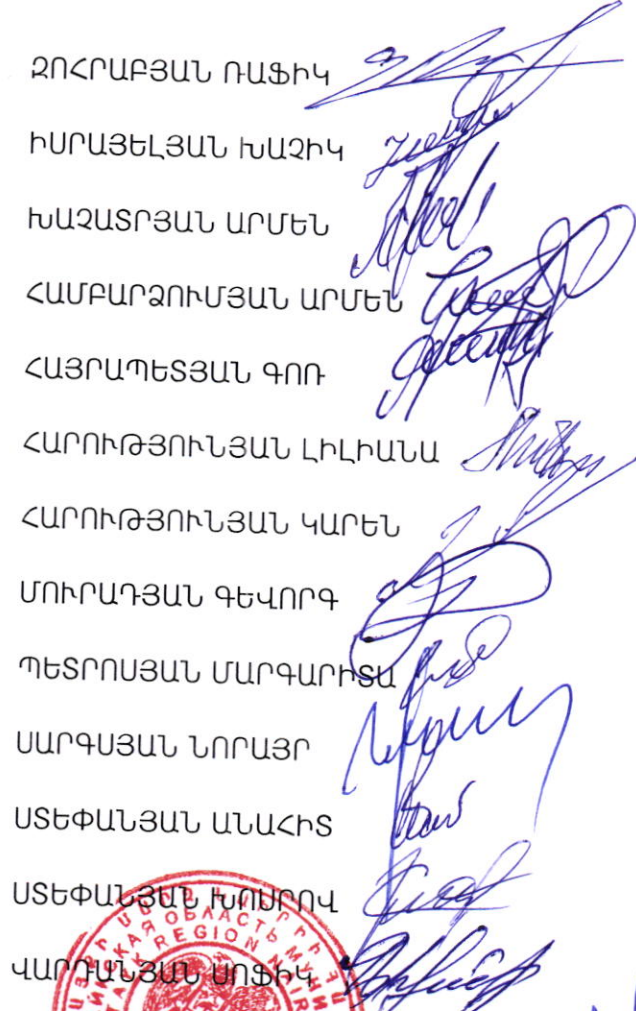 ԶՈՀՐԱԲՅԱՆ ՌԱՖԻԿ
ԻՍՐԱՅԵԼՅԱՆ ԽԱՉԻԿ
ԽԱՉԱՏՐՅԱՆ ԱՐՄԵՆ
ՀԱՄԲԱՐՁՈՒՄՅԱՆ ԱՐՄԵՆ
ՀԱՅՐԱՊԵՏՅԱՆ ԳՈՌ
ՀԱՐՈՒԹՅՈՒՆՅԱՆ ԼԻԼԻԱՆԱ
ՀԱՐՈՒԹՅՈՒՆՅԱՆ ԿԱՐԵՆ
ՄՈՒՐԱԴՅԱՆ ԳԵՎՈՐԳ
ՊԵՏՐՈՍՅԱՆ ՄԱՐԳԱՐԻՏԱ
ՍԱՐԳՍՅԱՆ ՆՈՐԱՅՐ
ՍՏԵՓԱՆՅԱՆ ԱՆԱՀԻՏ
ՍՏԵՓԱՆՅԱՆ ԽՈՍՐՈՎ
ՎԱՐԴԱՆՅԱՆ ՍՈՖԻԿ
ОБЛАСТЬ
REGION